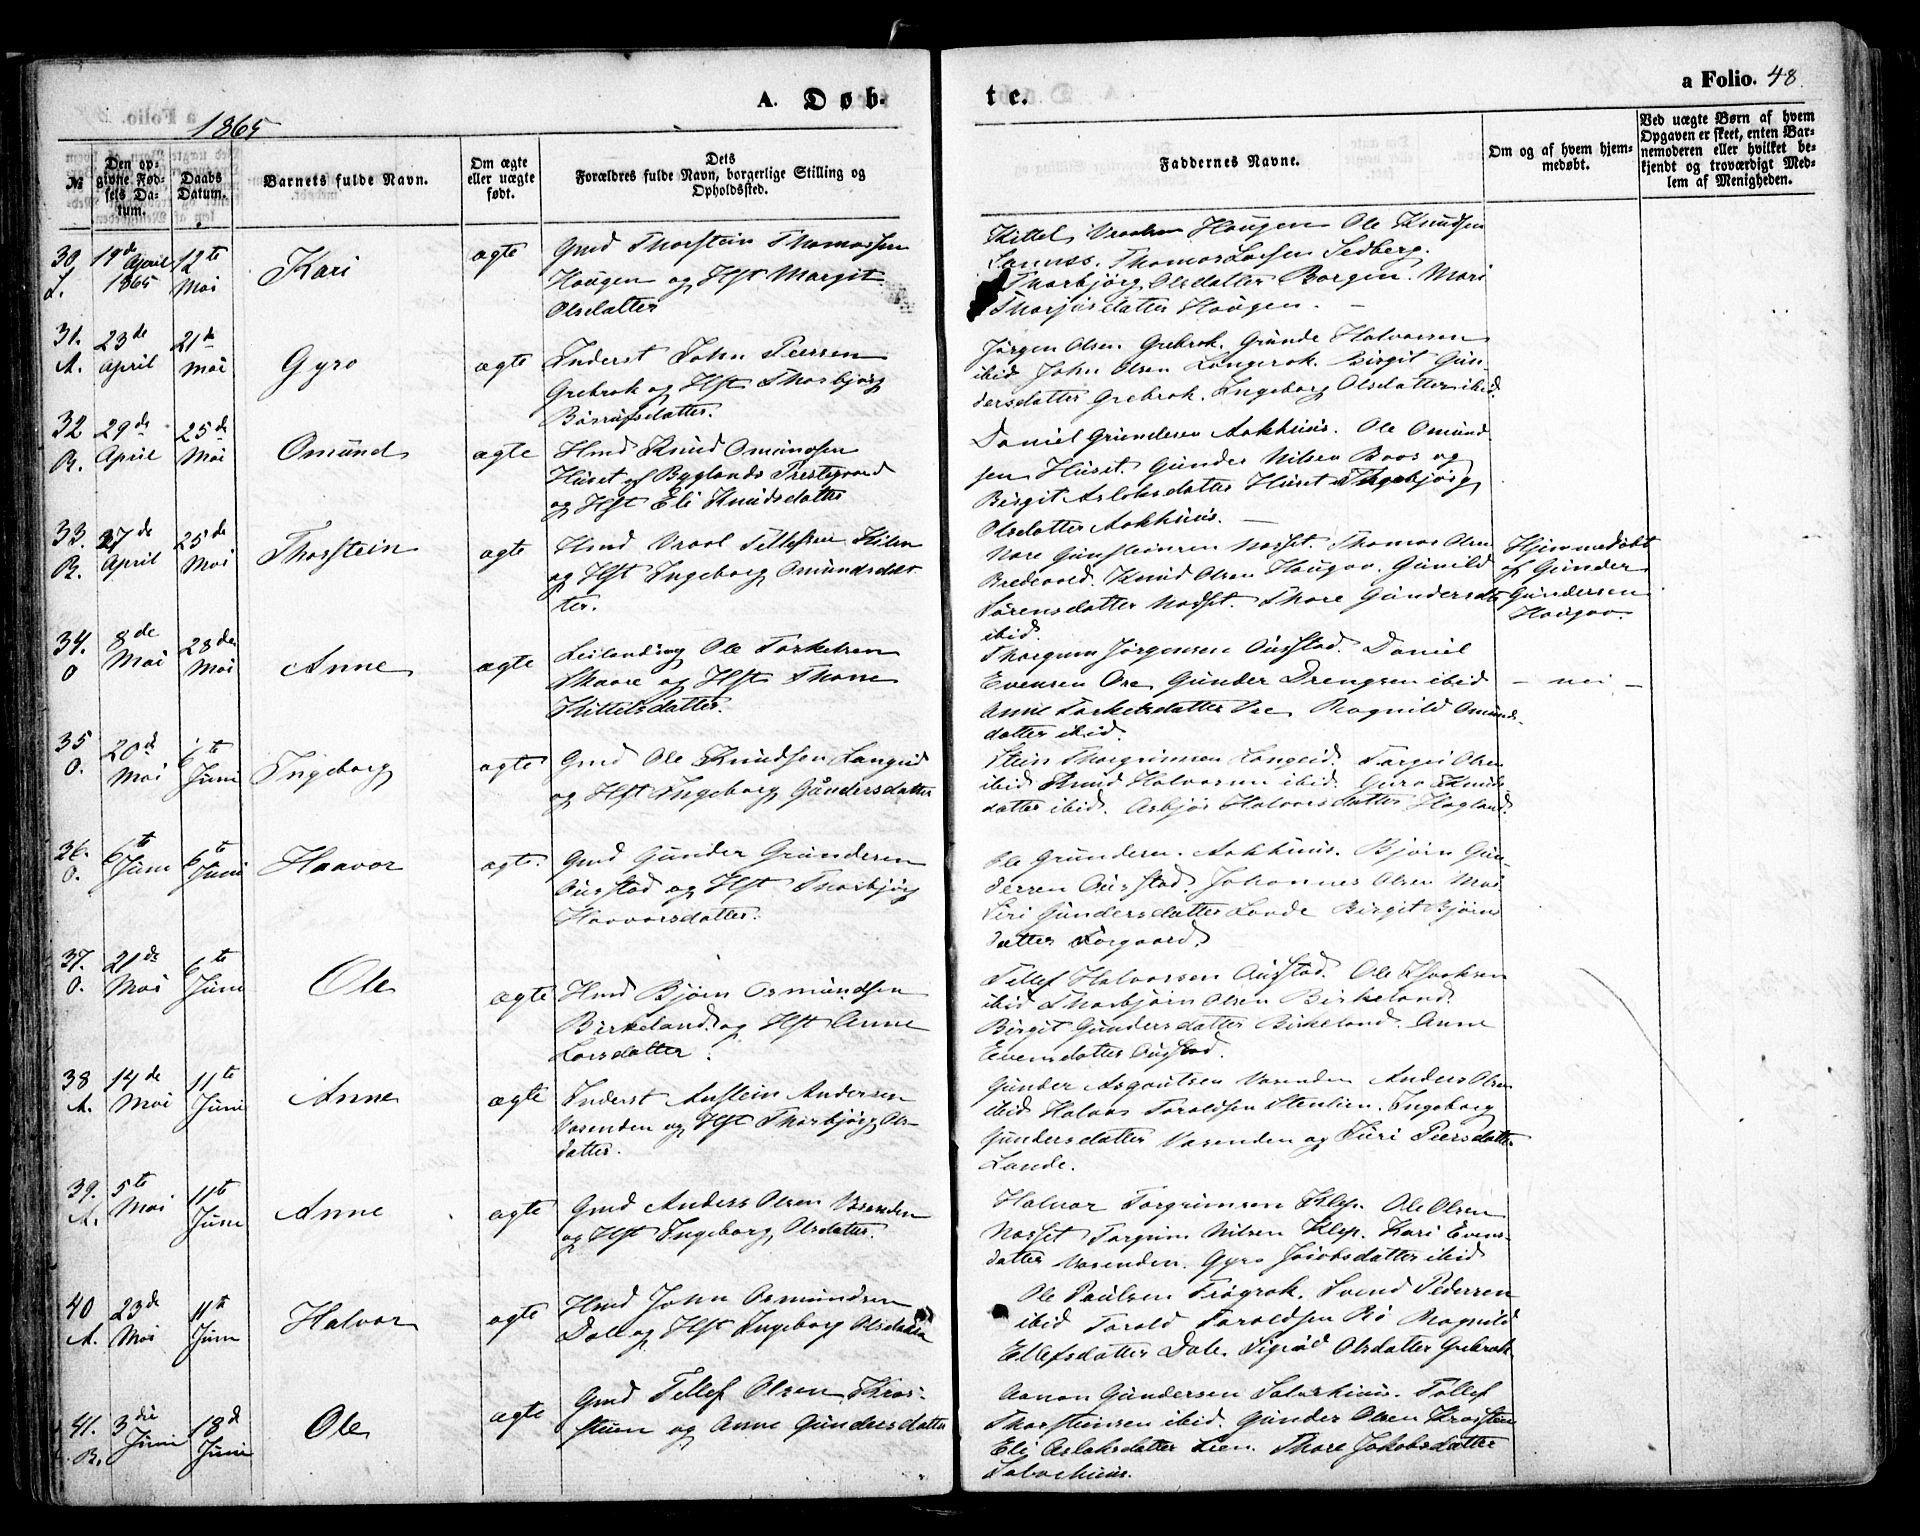 A. Døb-
te.
a Folio. 48.
1865
№
Den op-
givne Fød-
sels Da-
tum.
Daabs
Datum.
Barnets fulde Navn.
Om ægte
eller uægte
født.
Dets
Forældres fulde Navn, borgerlige Stilling og
Opholdssted.
Faddernes Navne.
Om og af hvem hjem-
medøbt.
Ved uægte Børn af hvem
Opgaven er skeet, enten Bar-
nemoderen eller hvilket be-
kjendt og troværdigt Med-
lem af Menigheden.
30 19de April 12te
L. 1865 Mai
Kari
ægte
Gmd Thorstein Thomassen
Hougen og Hst Margit
Olsdatter
Kittel Hougen Ole Knudsen
Thomas Larsen Sedberg.
Thorbjørg Olsdatter Borgen. Mari
Thorjusdatter Hougen. —
31. 23de 21de
A. April Mai
Gyro
ægte
Inderst John Peersen
Grebrok og Hst Thorbjørg
Jørgen Olsen Grebrok. Gunde Halvorsen
ibid John Olsen Langerok. Birgit Gun-
dersdatter Grebrok. Ingeborg Olsdatter ibid.
32 29de 25de
B. April Mai
Omund
ægte
Hmd Knud Omundsen
Huset af Byglands Prestegaard
og Hst Eli Knudsdatter
Daniel Gundersen Aakhuus. Ole Omund-
sen Huset. Gunder Nilsen Boos og
Birgit Aslaksdatter Huset Thorbjørg
Olsdatter Aakhuus. —
33. 27de 25de
B. April Mai
Thorstein
ægte
Hmd Vraal Tellefsen
og Hst Ingeborg Omundsdat-
ter.
Nare Gunsteinsen Nasset. Thomas Olsen
Bredvold. Knud Olsen Hougaa. Gunild
Sørensdatter Nasset. Thore Gundersdtr
ibid.
Hjemmedøbt
af Gunder
Gundersen
Hougaa.
34. 8de 28de
O Mai Mai
Anne
ægte
Leilænding Ole Torkelsen
Skaare og Hst Thone
Kittelsdatter.
Thorgrim Jørgensen Austad. Daniel
Evensen Ose Gunder Drengsen ibid
Anne Torkelsdatter Ose Ragnild Omunds-
datter ibid.
— nei —
35 20d 6te
O. Mai Juni
Ingeborg
ægte
Gmd Ole Knudsen Langeid
og Hst Ingeborg Gundersdatter
Stein Thorgrimsen Langeid. Torgei Olsen
ibid Knud Halvorsen ibid. Guro Knuds-
datter ibid. Asbjør Halvorsdatter Hagland.
36. 6te 6te
O. Juni Juni
Haavor
ægte.
Gmd Gunder Gundersen
Austad og Hst Thorbjørg
Haavorsdatter.
Ole Gundersen. Aakhuus. Bjørn Gun-
dersen Austad. Johannes Olsen Moi
Siri Gundersdatter Lande Birgit Bjørns-
datter
37. 21de 6te
O. Mai Juni
Ole
ægte
Hmd Bjørn Osmundsen
Birkeland og Hst Anne
Larsdatter.
Tellef Halvorsen Austad. Ole
ibid Thorbjørn Olsen Birkeland.
Birgit Gundersdatter Birkeland. Anne
Evensdatter Austad.
38 14de 11te
A. Mai Juni
Anne
ægte
Inderst Austein Andersen
Vasenden og Hst Thorbjørg Ols-
datter.
Gunder Asgautsen Vasenden Anders Olsen
ibid Halvor Taroldsen Stenlien. Ingeborg
Gundersdatter Vasenden og Siri Peersdatter
Lande.
39. 5te 11te
A. Mai Juni
Anne
ægte
Gmd Anders Olsen Vasenden
og Hst Ingeborg Olsdatter.
Halvor Torgrimsen Klep. Ole Olsen
Nasset Torgrim Nilsen Klep. Kari Evens-
datter Vasenden. Gyro Jacobsdatter ibid
40 23de 11te
A. Mai Juni
Halvor
ægte
Hmd John Osmundsen
Dale og Hst Ingeborg Olsdatter
Ole Paulsen Frøyrak. Svend Pedersen
ibid Tarald Taraldsen Bø Ragnild
Ellefsdatter Dale. Sigrid Olsdatter Grebrok.
41. 3die 18d
B. Juni Juni
Ole
ægte
Gmd Tellef Olsen
og Anne Gundersdatter
Aanon Gundersen Tellef
Thorsteinsen ibid. Gunder Olsen
Eli Aslaksdatter Lien. Thore Jakobsdatter